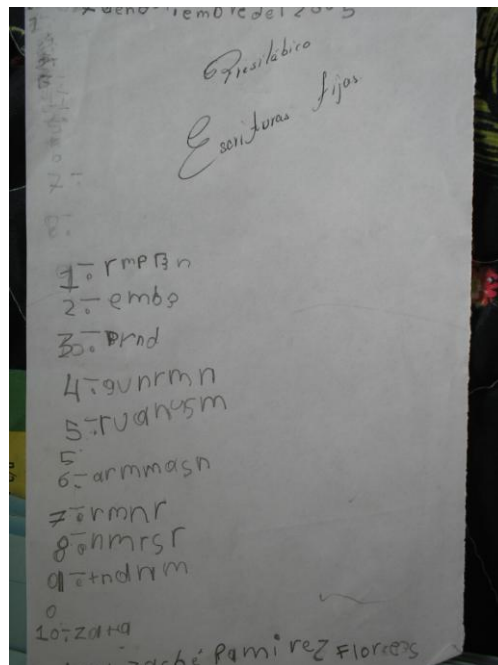 Presilábico
Escrituras fijas.
1-. rmpBn
2-. embo
3-. Prnd
4-. gunrmn
5-. ruanusm
5
6-. armmasn
7-. rmnr
8-. nmrsr
9-. tndnm
0
10-. zata
Ramirez Florces